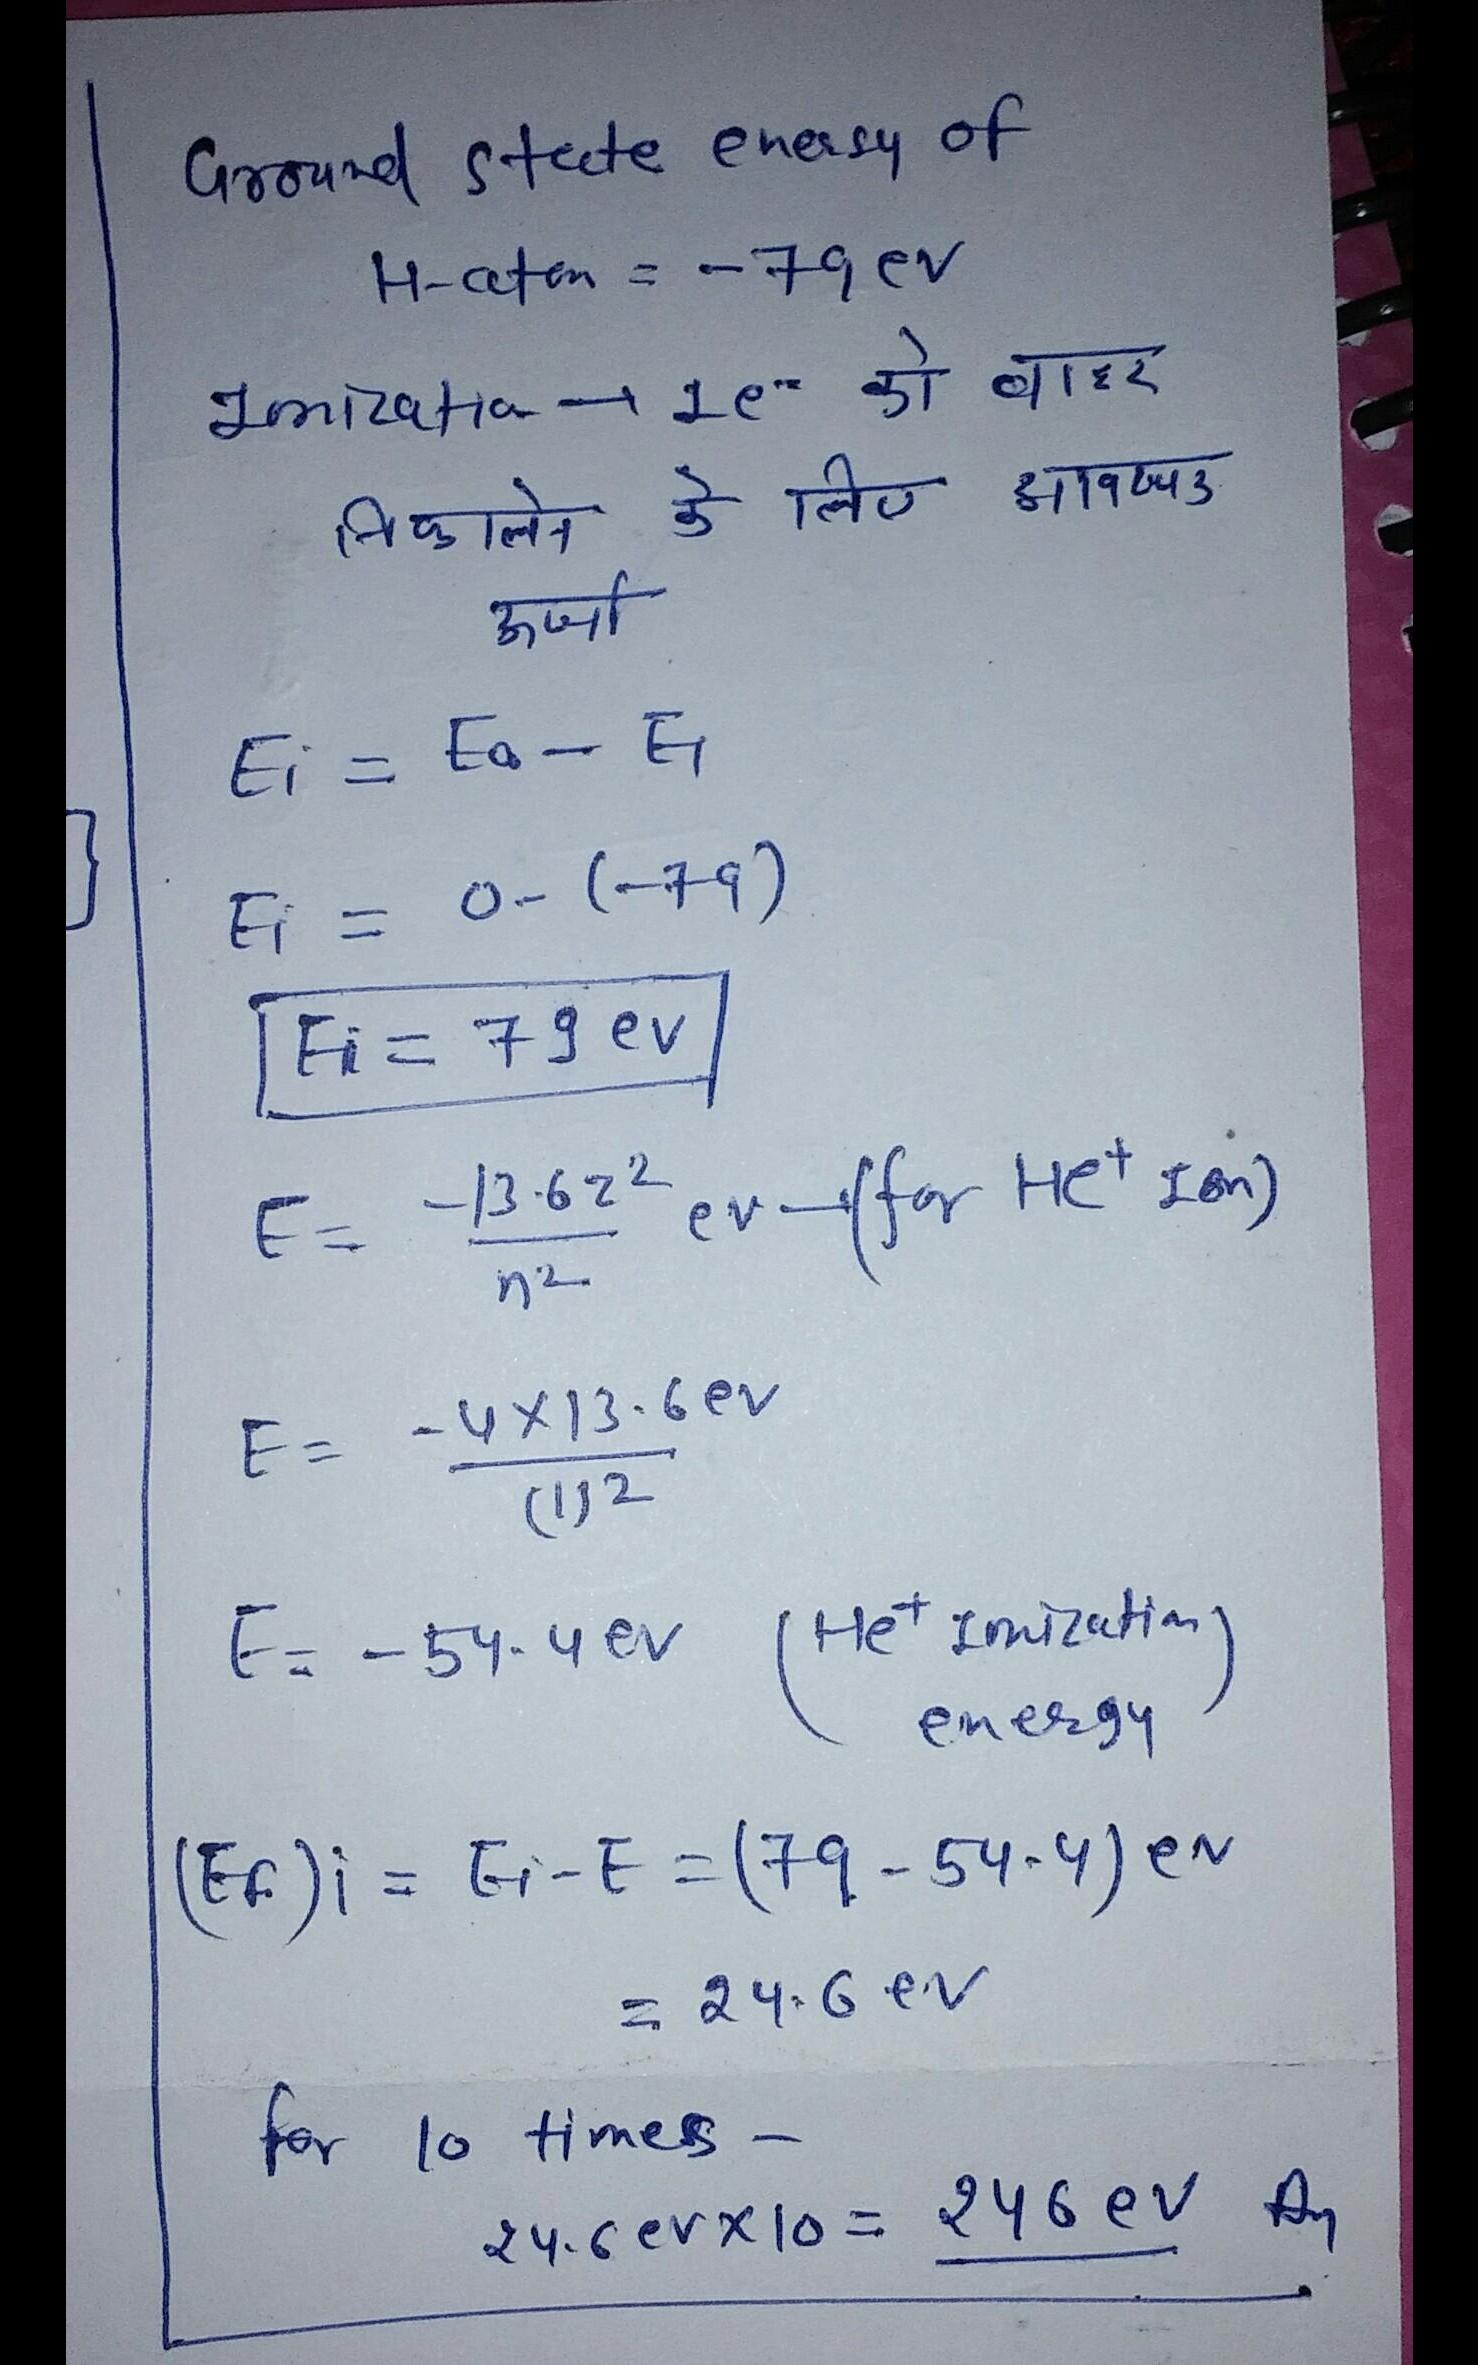 Ground state energy of
H-atom = -79 ev
Ionization → 1e⁻ को बाहर
निकालने के लिए आवश्यक
ऊर्जा
Ei = E∞ - E1
Ei = 0-(-79)
Ei = 79 ev
E = -13.6z²/n² ev → (for He+ Ion)
E = -4×13.6ev/(1)²
E = -54.4 ev (He+ Ionization energy)
i = Ei-E = (79-54.4) ev
= 24.6 ev
for 10 times -
24.6 ev×10 = 246 ev